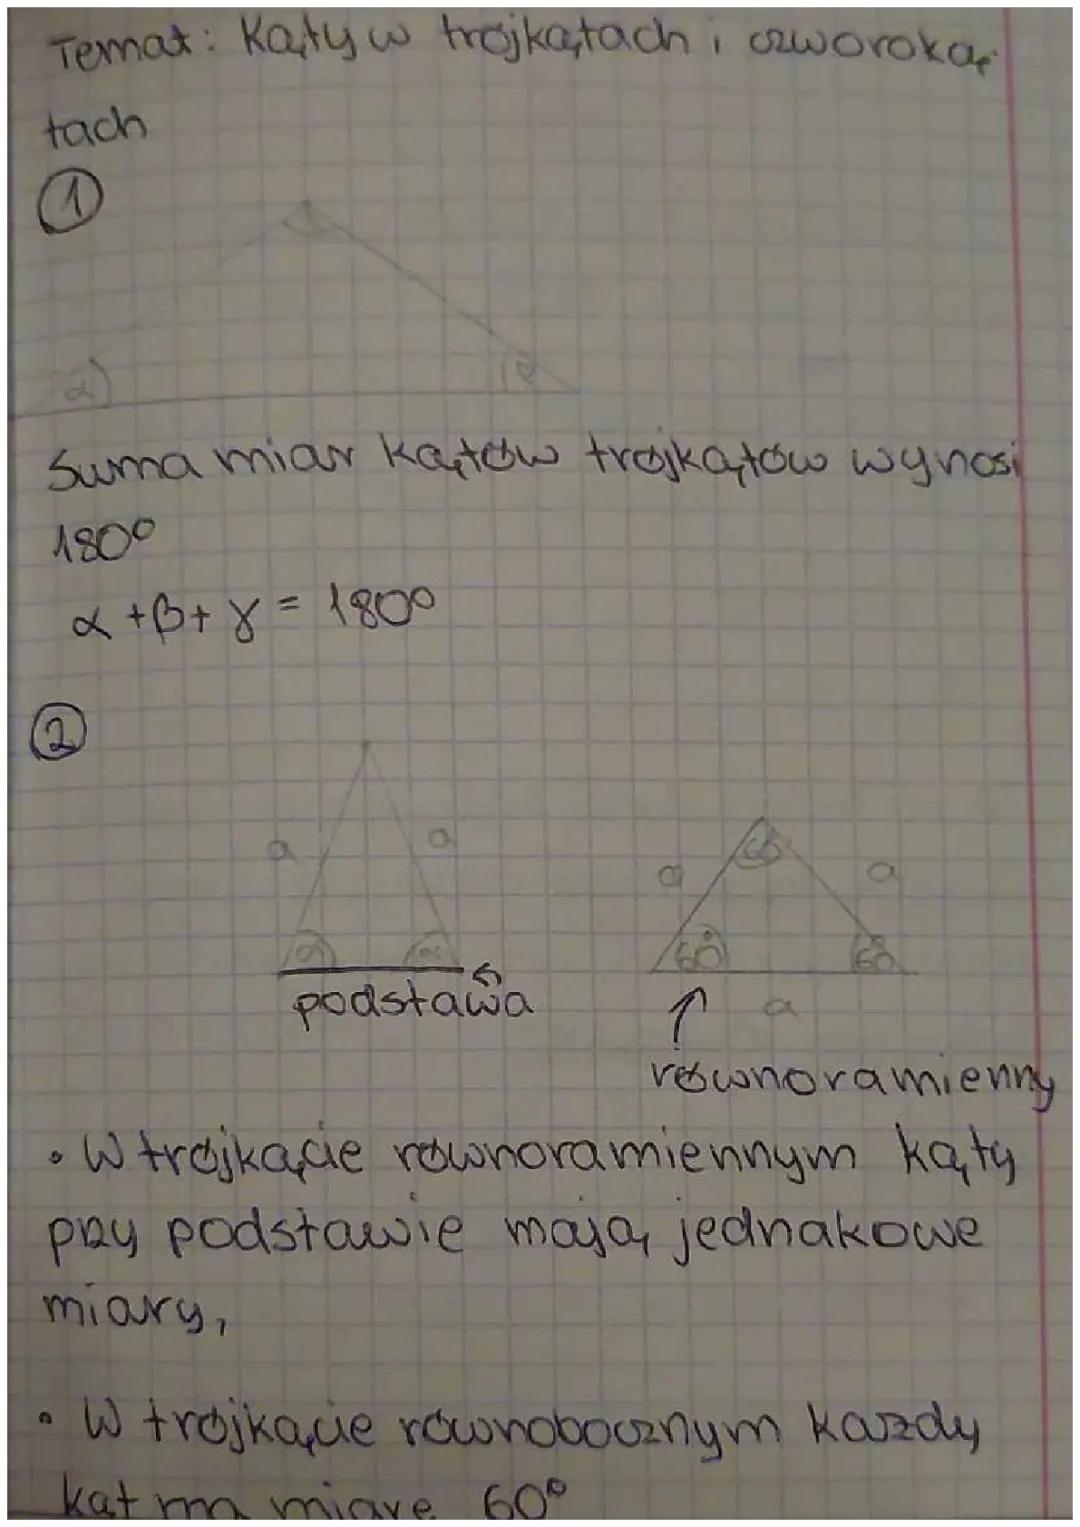 Temat: Kąty w trójkątach i czworoką-
tach
1
α
β
Suma miar kątów trójkątów wynosi
180°
α + β + γ = 180°
2
a a
α α
podstawa
a a
60°
60° 60°
a
równoramienny
• W trójkącie równoramiennym kąty
przy podstawie mają jednakowe
miary,
• W trójkącie równobocznym każdy
kąt ma miarę 60°